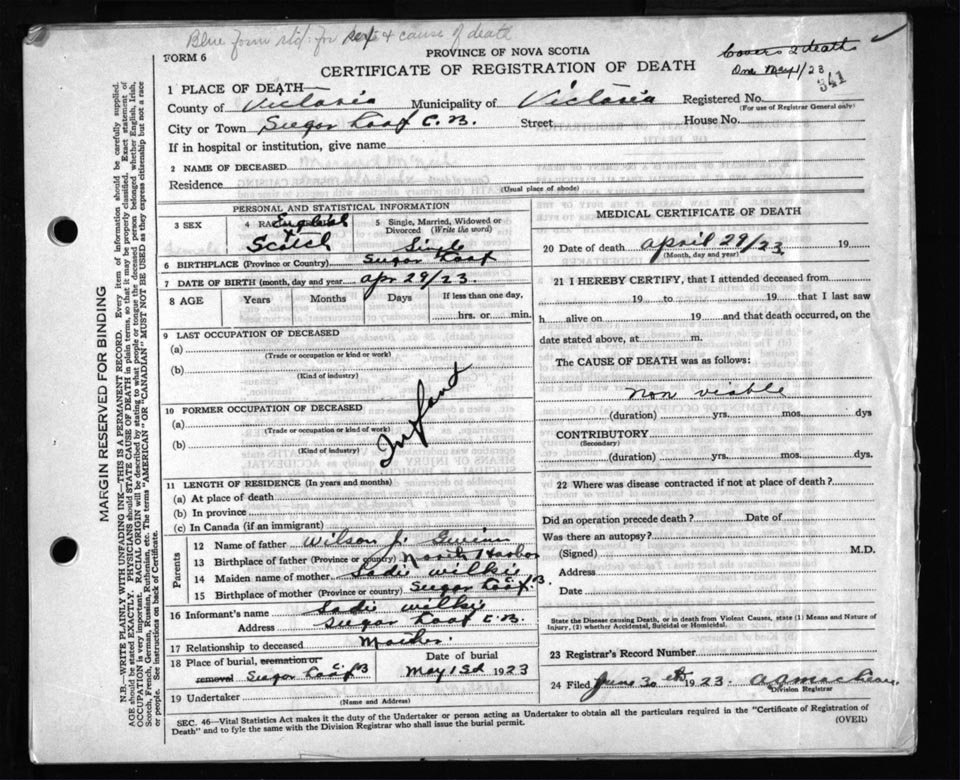 Blue form std. for sex & cause of death
FORM 6
PROVINCE OF NOVA SCOTIA
CERTIFICATE OF REGISTRATION OF DEATH
Covers 2 deaths
One May 1/23
341
1 PLACE OF DEATH
County of Victoria Municipality of Victoria Registered No.
(For use of Registrar General only)
City or Town Sugar Loaf C.B. Street House No.
If in hospital or institution, give name
2 NAME OF DECEASED
Residence
(Usual place of abode)
PERSONAL AND STATISTICAL INFORMATION
3 SEX
4 RA English & Scotch
5 Single, Married, Widowed or Divorced (Write the word)
Single
6 BIRTHPLACE (Province or Country) Sugar Loaf
7 DATE OF BIRTH (month, day and year) Apr 29/23.
8 AGE Years Months Days If less than one day, hrs. or min.
9 LAST OCCUPATION OF DECEASED
(a)
(Trade or occupation or kind or work)
(b)
(Kind of industry)
10 FORMER OCCUPATION OF DECEASED
(a)
(Trade or occupation or kind or work)
(b)
(Kind of industry)
Infant
11 LENGTH OF RESIDENCE (In years and months)
(a) At place of death
(b) In province
(c) In Canada (if an immigrant)
Parents
12 Name of father Wilson J.
13 Birthplace of father (Province or country) North Harbor
14 Maiden name of mother Sadie Wilkie
15 Birthplace of mother (Province or country) Sugar Loaf C.B.
16 Informant's name Sadie Wilkie
Address Sugar Loaf C.B.
17 Relationship to deceased Mother.
18 Place of burial, cremation or removal Sugar Loaf C.B Date of burial May 1st 1923
19 Undertaker
(Name and Address)
MEDICAL CERTIFICATE OF DEATH
20 Date of death April 29/23. 19
(Month, day and year)
21 I HEREBY CERTIFY, that I attended deceased from
19 to 19 that I last saw
h alive on 19 and that death occurred, on
date stated above, at m.
The CAUSE OF DEATH was as follows:
Non viable
(duration) yrs. mos. dys
CONTRIBUTORY
(Secondary)
(duration) yrs. mos. dys.
22 Where was disease contracted if not at place of death?
Did an operation precede death? Date of
Was there an autopsy?
(Signed) M.D.
Address
Date
State the Disease causing Death, or in death from Violent Causes, state (1) Means and Nature of Injury, (2) whether Accidental, Suicidal or Homicidal.
23 Registrar's Record Number
24 Filed June 30th 1923.
Division Registrar
SEC. 46—Vital Statistics Act makes it the duty of the Undertaker or person acting as Undertaker to obtain all the particulars required in the "Certificate of Registration of Death" and to fyle the same with the Division Registrar who shall issue the burial permit.
(OVER)
MARGIN RESERVED FOR BINDING
N.B.—WRITE PLAINLY WITH UNFADING INK—THIS IS A PERMANENT RECORD. Every item of information should be carefully supplied.
AGE should be stated EXACTLY. PHYSICIANS should STATE CAUSE OF DEATH in plain terms, so that it may be properly classified. Exact statement of
OCCUPATION is very important. RACIAL ORIGIN will be described by stating to what people or tongue the deceased person belonged whether English, Irish,
Scotch, French, German, Russian, Ruthenian, etc. The terms "AMERICAN" OR "CANADIAN" MUST NOT BE USED as they express citizenship but not a race
or people. See instructions on back of Certificate.